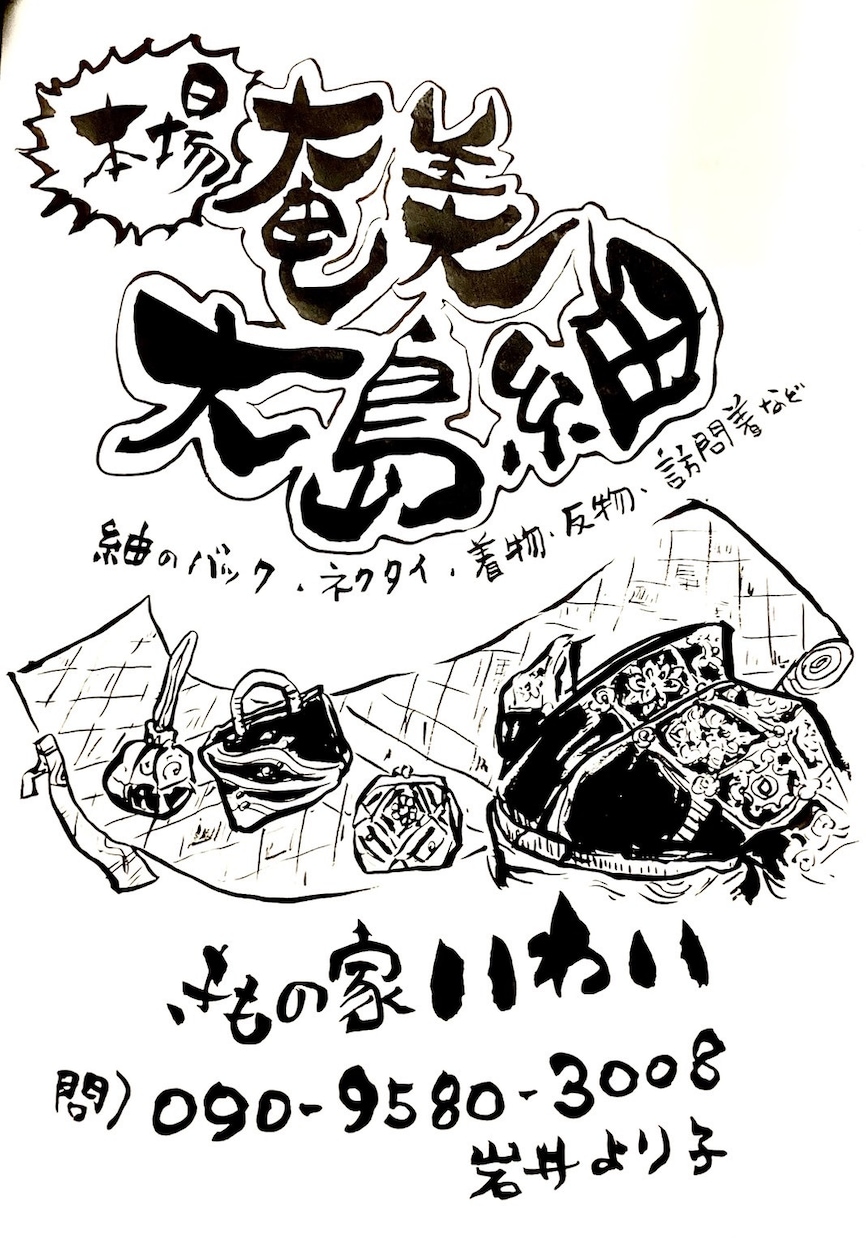 本場
奄美
大島紬
紬のバック・ネクタイ・着物・反物・訪問着など
きもの家いわい
問)090-9580-3008
岩井より子